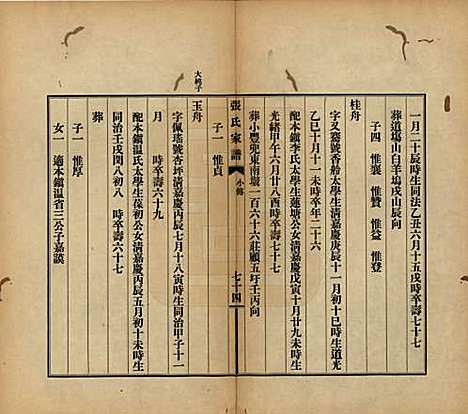 一月二十辰時生同法乙丑六月十五戌時卒壽七十七
葬道塲山白羊塢戌山辰向
子四 惟襄 惟贊 惟益 惟登
桂舟
字又襄號香舲太學生清嘉慶庚辰十一月初十巳時生道光
乙巳十月十一未時卒年二十六
配本鎮李氏太學生蓮塘公女清嘉慶戊寅十月廿九未時生
光緒甲午六月廿八酉時卒壽七十七
葬小豐兜東南壩一百六十六莊顧五圩壬丙向
張氏家譜 小傳 七十四
子一 惟貞
大終子
玉舟
字佩瑤號杏坪清嘉慶丙辰七月十八寅時生同治甲子十一
月 時卒壽六十九
配本鎮温氏太學生葆初公女清嘉慶丙辰五月初十未時生
同治壬戌閏八初八 時卒壽六十七
葬
子一 惟厚
女一 適本鎮温省三公子嘉謨